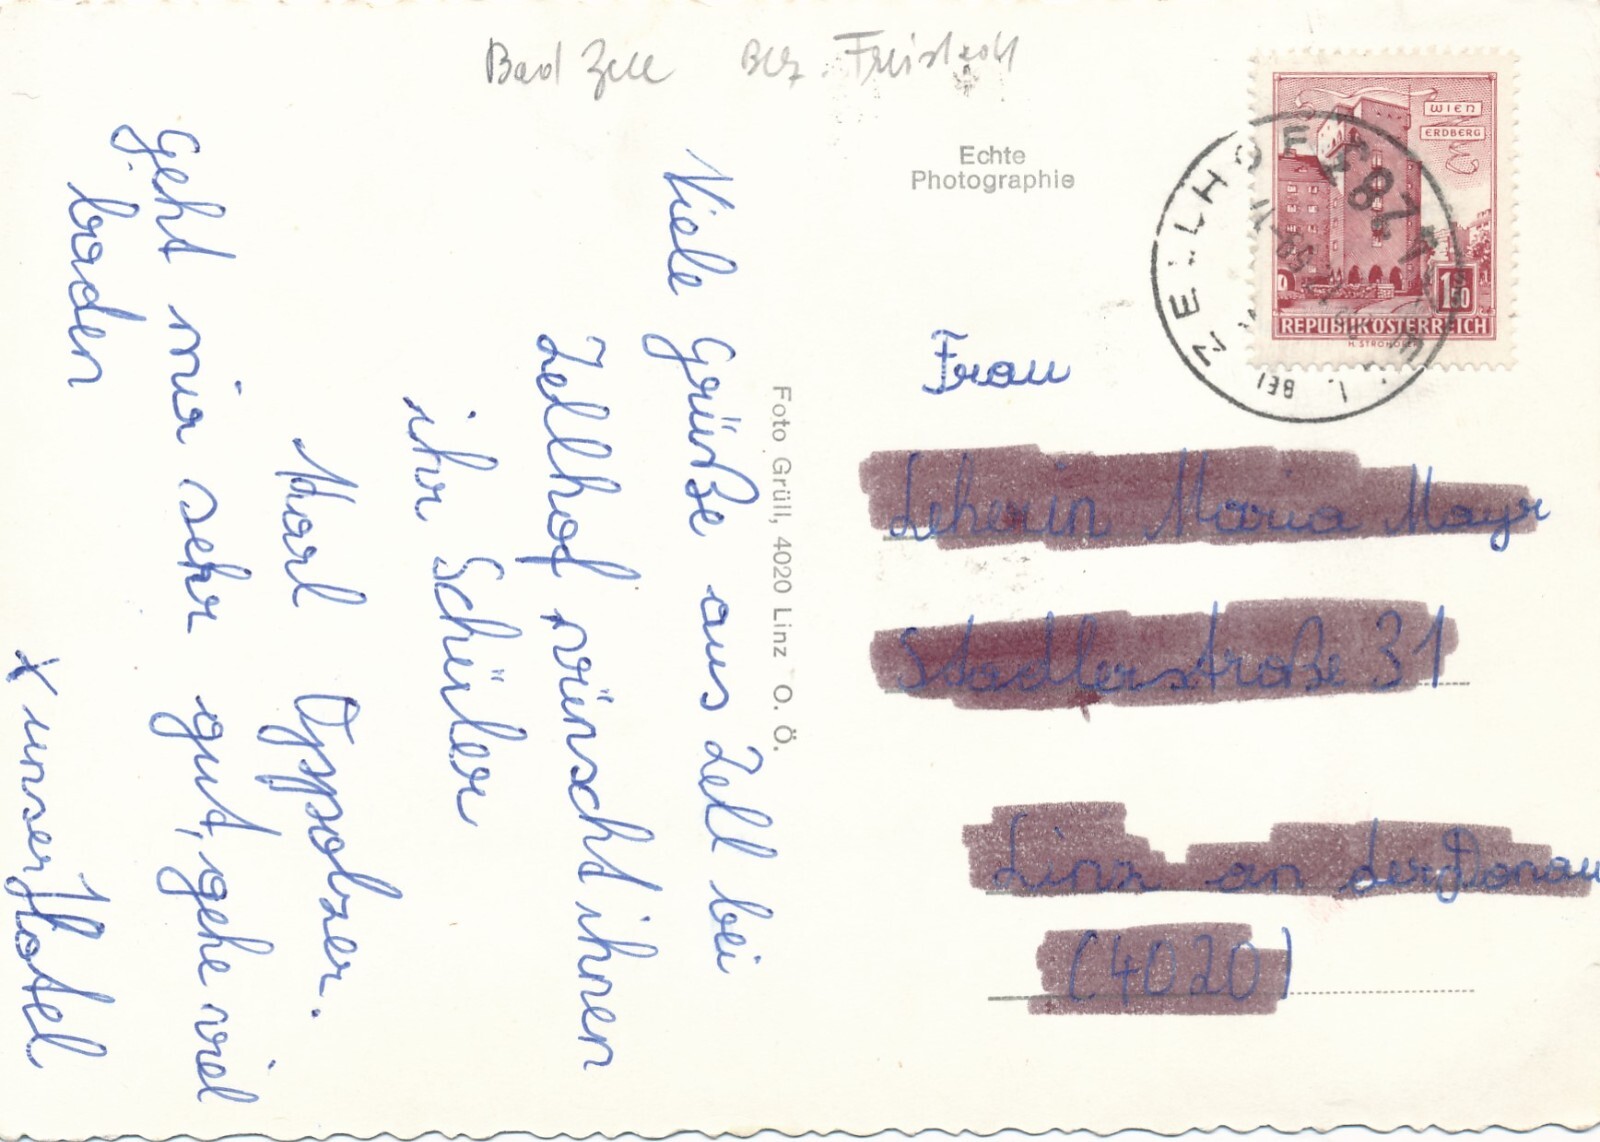 Bad Zell Bez. Freistadt
Echte
Photographie
WIEN
ERDBERG
1.50
S
REPUBLIK ÖSTERREICH
ZELLHOF
BEI
4287
Viele Grüße aus Zell bei
Zellhof wünscht ihnen
ihr Schüler
Karl Oppolzer.
Geht mir sehr gut, gehe viel
baden
X unser Hotel
Foto Grüll, 4020 Linz O. Ö.
Frau
Leherin Maria Mayr
Stadlerstraße 31
Linz an der Donau
(4020)